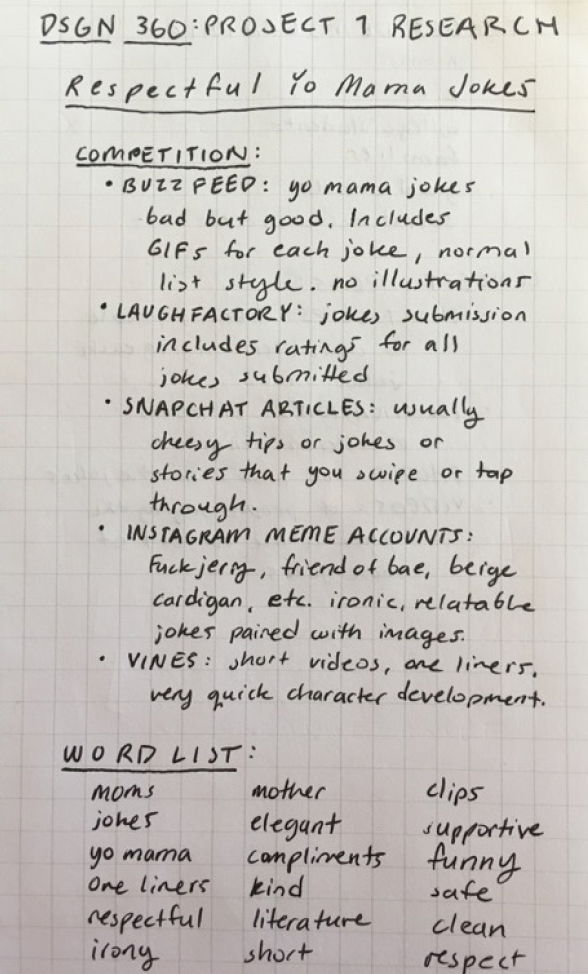 DSGN 360: PROJECT 1 RESEARCH
Respectful Yo Mama Jokes
COMPETITION:
• BUZZ FEED: yo mama jokes
bad but good. Includes
GIFs for each joke, normal
list style. no illustrations
• LAUGHFACTORY: jokes submission
includes ratings for all
jokes submitted
• SNAPCHAT ARTICLES: usually
cheesy tips or jokes or
stories that you swipe or tap
through.
• INSTAGRAM MEME ACCOUNTS:
Fuck jerry, friend of bae, beige
cardigan, etc. ironic, relatable
jokes paired with images.
• VINES: short videos, one liners,
very quick character development.
WORD LIST:
moms mother clips
jokes elegant supportive
yo mama compliments funny
one liners kind safe
respectful literature clean
irony short respect